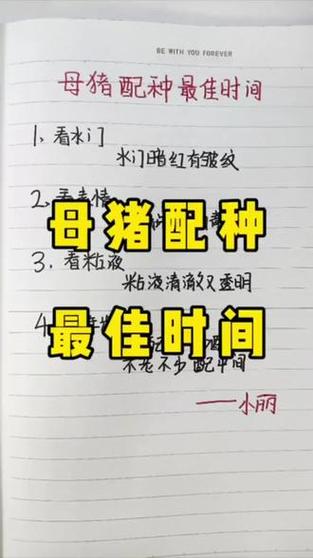 BE WITH YOU FOREVER
母猪配种最佳时间
1、看水门
水门暗红有皱纹
2、看表情
母猪配种
3、看粘液
粘液清澈又透明
最佳时间
4
不老不少配中间
——小丽